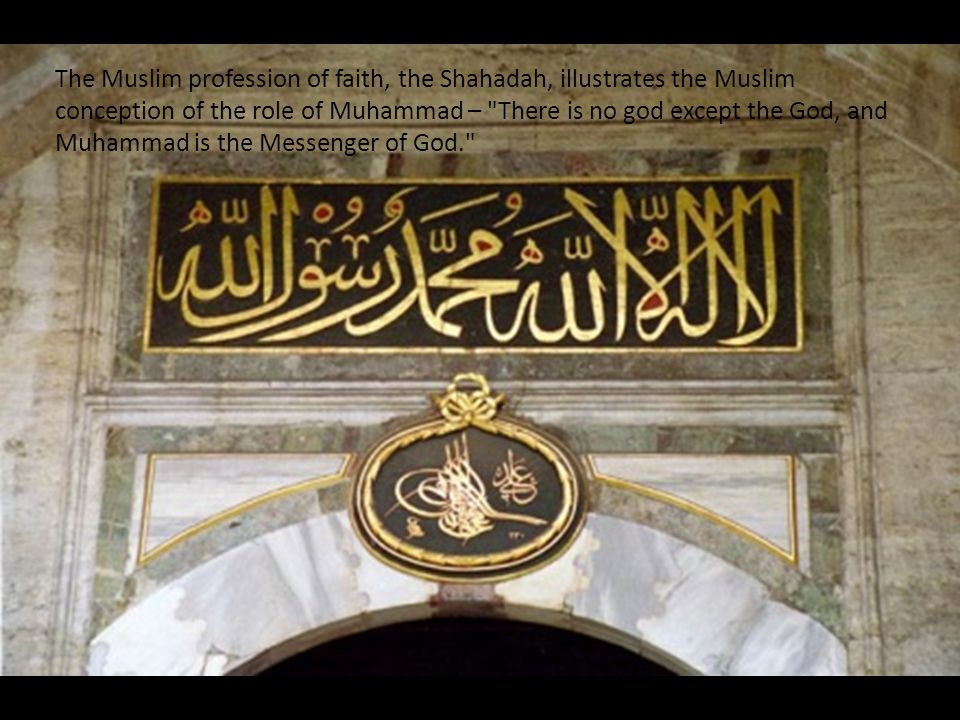 The Muslim profession of faith, the Shahadah, illustrates the Muslim
conception of the role of Muhammad – "There is no god except the God, and
Muhammad is the Messenger of God."
لا اله الا الله محمد رسول الله